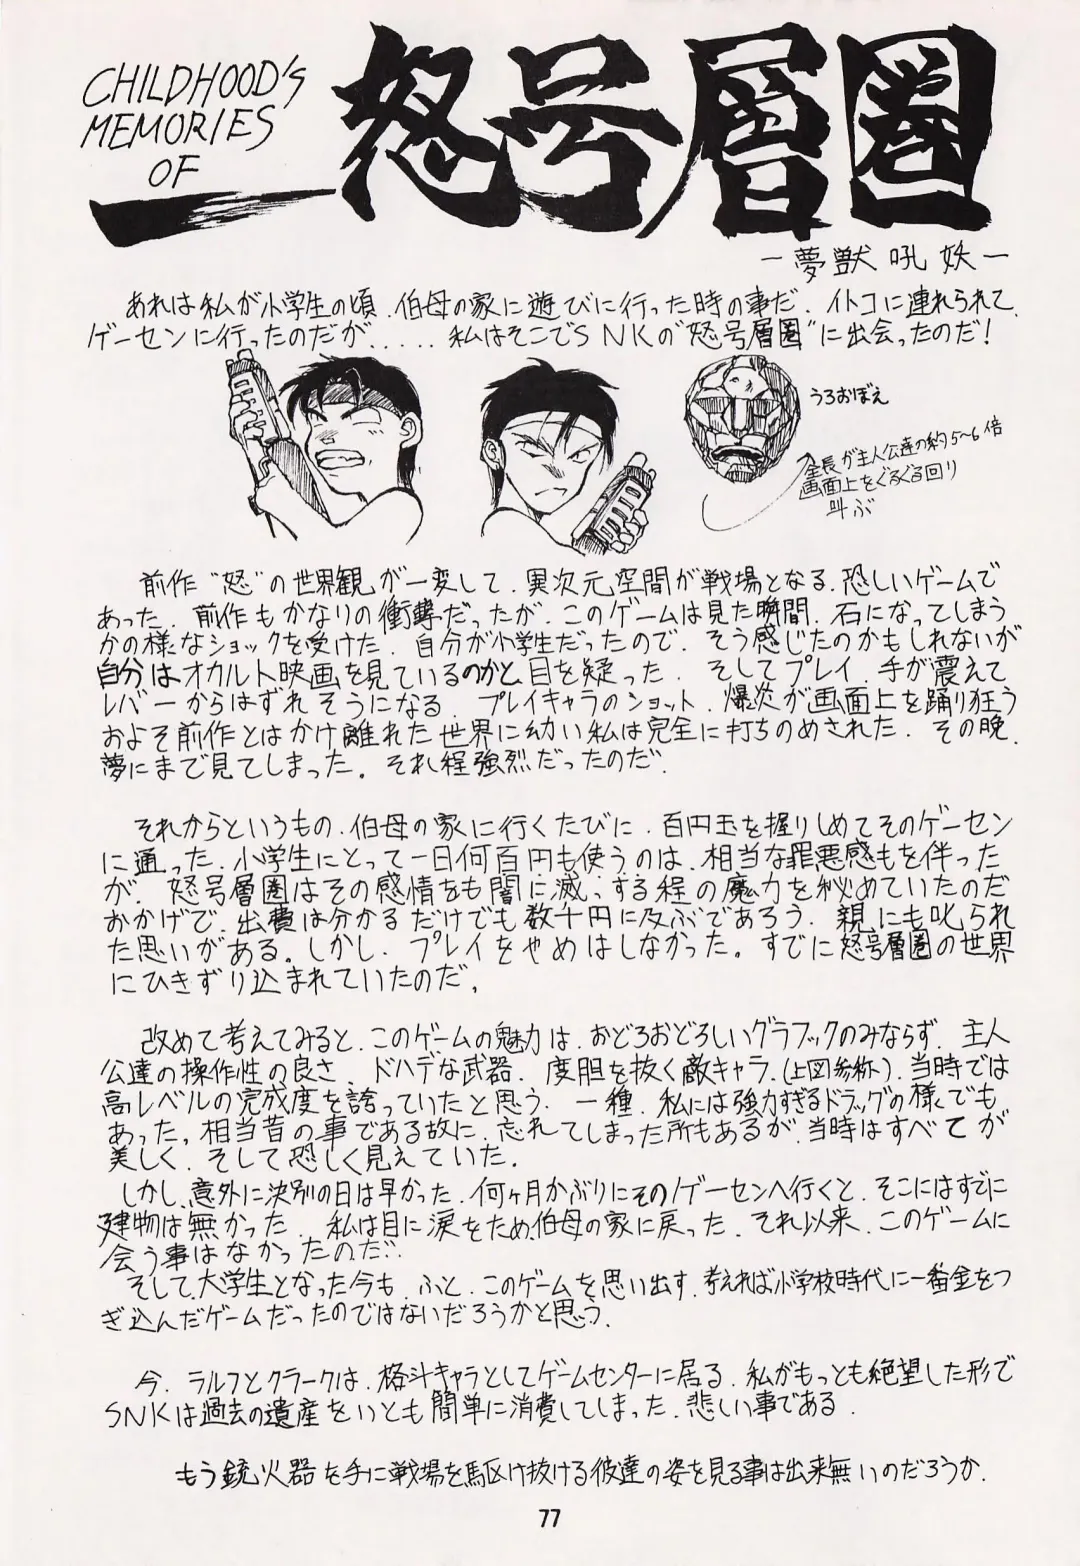 CHILDHOOD'S
MEMORIES
OF
怒号層圏
ー夢獣吼妖ー
あれは私が小学生の頃、伯母の家に遊びに行った時の事だ、イトコに連れられて、
ゲーセンに行ったのだが.....私はそこでSNKの"怒号層圏"に出会ったのだ!
うろおぼえ
全長が主人公達の約5~6倍
画面上をぐるぐる回り
叫ぶ
前作"怒"の世界観が一変して、異次元空間が戦場となる、恐しいゲームで
あった、前作もかなりの衝撃だったが、このゲームは見た瞬間、石になってしまう
かの様なショックを受けた、自分が小学生だったので、そう感じたのかもしれないが
自分はオカルト映画を見ているのかと目を疑った、そしてプレイ、手が震えて
レバーからはずれそうになる、プレイキャラのショット、爆炎が画面上を踊り狂う
およそ前作とはかけ離れた世界に幼い私は完全に打ちのめされた、その晩、
夢にまで見てしまった。それ程強烈だったのだ、
それからというもの、伯母の家に行くたびに、百円玉を握りしめてそのゲーセン
に通った、小学生にとって一日何百円も使うのは、相当な罪悪感もを伴った
が、怒号層圏はその感情をも闇に滅っする程の魔力を秘めていたのだ
おかげで、出費は分かるだけでも数千円に及ぶであろう、親にも叱られ
た思いがある。しかし、プレイをやめはしなかった。すでに怒号層圏の世界
にひきずり込まれていたのだ。
改めて考えてみると、このゲームの魅力は、おどろおどろしいグラフックのみならず、主人
公達の操作性の良さ、ドハデな武器、度胆を抜く敵キャラ、(上図参称)、当時では
高レベルの完成度を誇っていたと思う、一種、私には強力すぎるドラッグの様でも
あった。相当昔の事である故に、忘れてしまった所もあるが、当時はすべてが
美しく、そして恐しく見えていた。
しかし、意外に決別の日は早かった、何ヶ月かぶりにそのゲーセンへ行くと、そこにはすでに
建物は無かった、私は目に涙をため、伯母の家に戻った、それ以来、このゲームに
会う事はなかったのだ…
そして、大学生となった今も、ふと、このゲームを思い出す、考えれば小学校時代に一番金をつ
ぎ込んだゲームだったのではないだろうかと思う、
今、ラルフとクラークは、格斗キャラとしてゲームセンターに居る、私がもっとも絶望した形で
SNKは過去の遺産をいとも簡単に消費してしまった、悲しい事である、
もう銃火器を手に戦場を駆け抜ける彼達の姿を見る事は出来無いのだろうか、
77